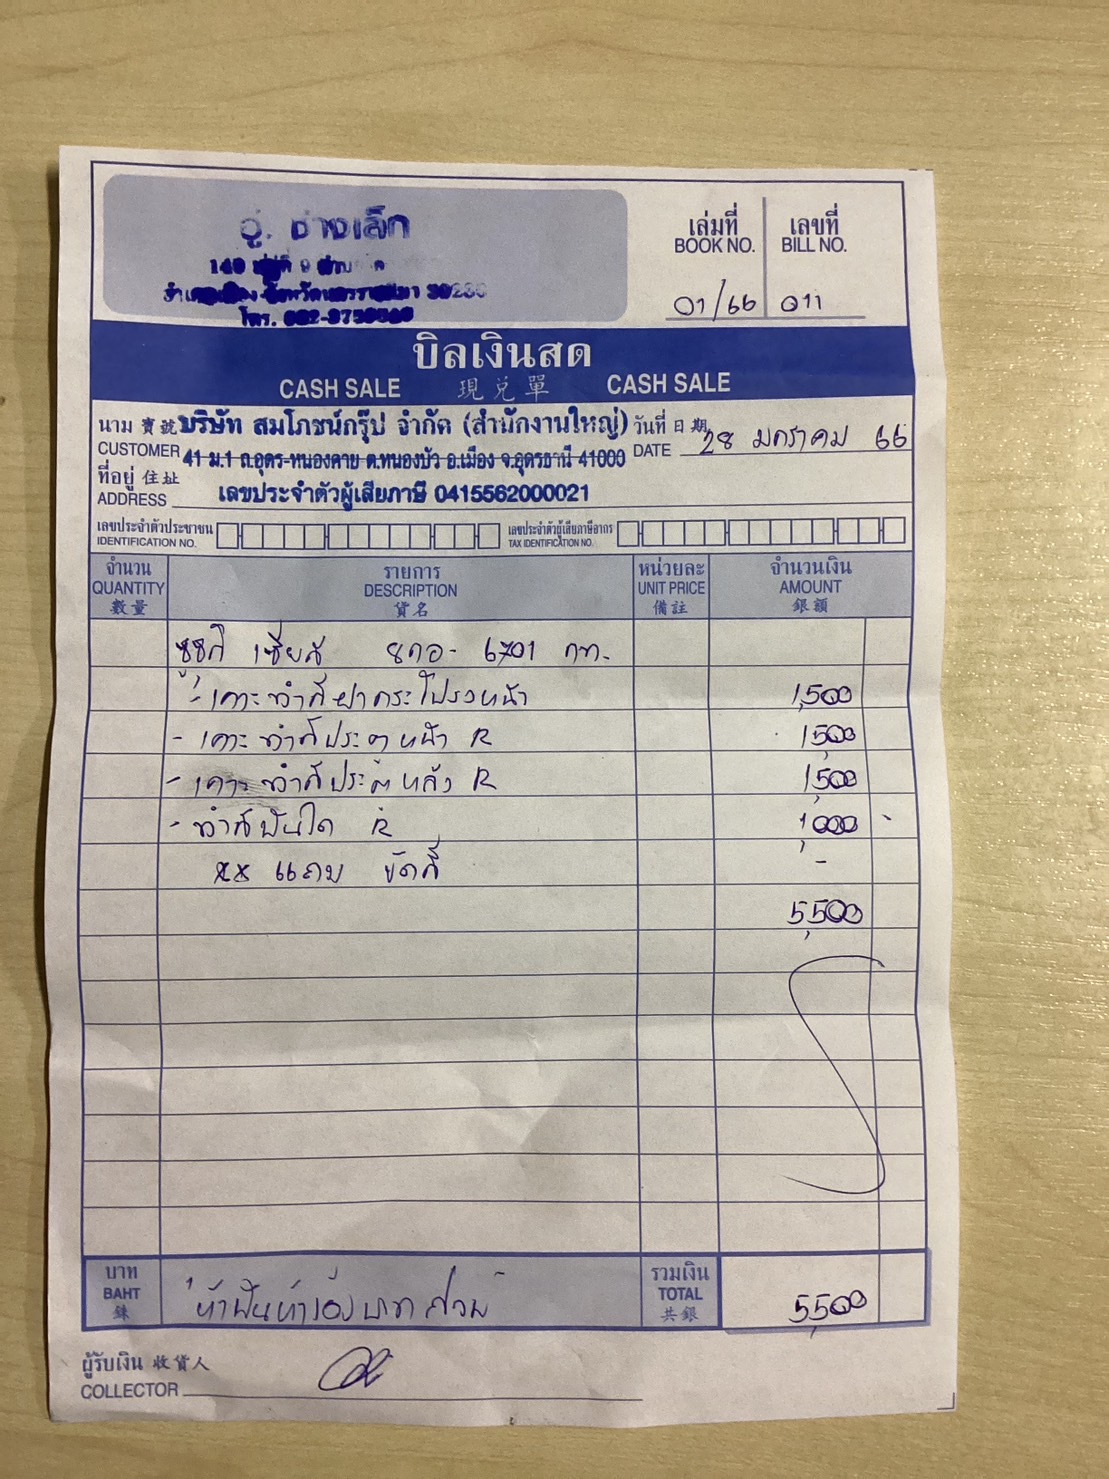 อู่. ช่างเล็ก
149 หมู่ที่ 9
จังหวัดนครราชสีมา
โทร.
เล่มที่ เลขที่
BOOK NO. BILL NO.
01/66 011
บิลเงินสด
CASH SALE 現兑單 CASH SALE
นาม 寶號 บริษัท สมโภชน์กรุ๊ป จำกัด (สำนักงานใหญ่) วันที่ 日期
CUSTOMER 41 ม.1 ถ.อุดร-หนองคาย ต.หนองบัว อ.เมือง จ.อุดรธานี 41000 DATE 28 มกราคม 66
ที่อยู่ 住址
ADDRESS เลขประจำตัวผู้เสียภาษี 0415562000021
เลขประจำตัวประชาชน เลขประจำตัวผู้เสียภาษีอากร
IDENTIFICATION NO. TAX IDENTIFICATION NO.
จำนวน รายการ หน่วยละ จำนวนเงิน
QUANTITY DESCRIPTION UNIT PRICE AMOUNT
數量 貨名 備註 銀額
ซูซูกิ เซียส 8กอ- 6701 กท.
- เคาะทำสีฝากระโปรงหน้า 1,500
- เคาะทำสีประตูหน้า R 1,500
- เคาะทำสีประตูหลัง R 1,500
- ทำสีบันได R 1,000 -
** แถม ขัดสี -
5,500
บาท รวมเงิน
BAHT ห้าพันห้าร้อยบาทถ้วน TOTAL 5,500
銖 共銀
ผู้รับเงิน 收貨人
COLLECTOR